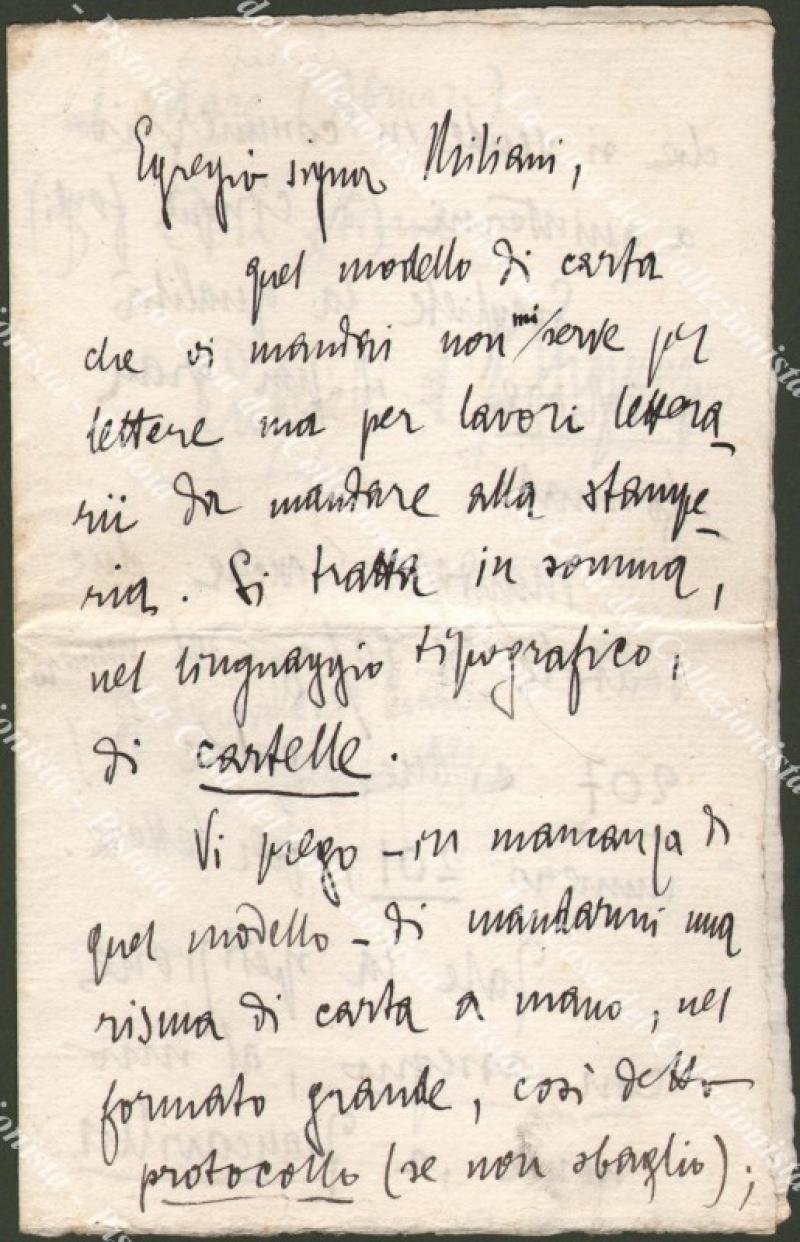 Egregio signor Miliani,
quel modello di carta
che vi mandai non mi serve per
lettere ma per lavori lettera-
rii da mandare alla stampe-
ria. Si tratta in somma,
nel linguaggio tipografico,
di cartelle.
Vi prego - in mancanza di
quel modello - di mandarmi una
risma di carta a mano, nel
formato grande, così detto
protocollo (se non sbaglio);